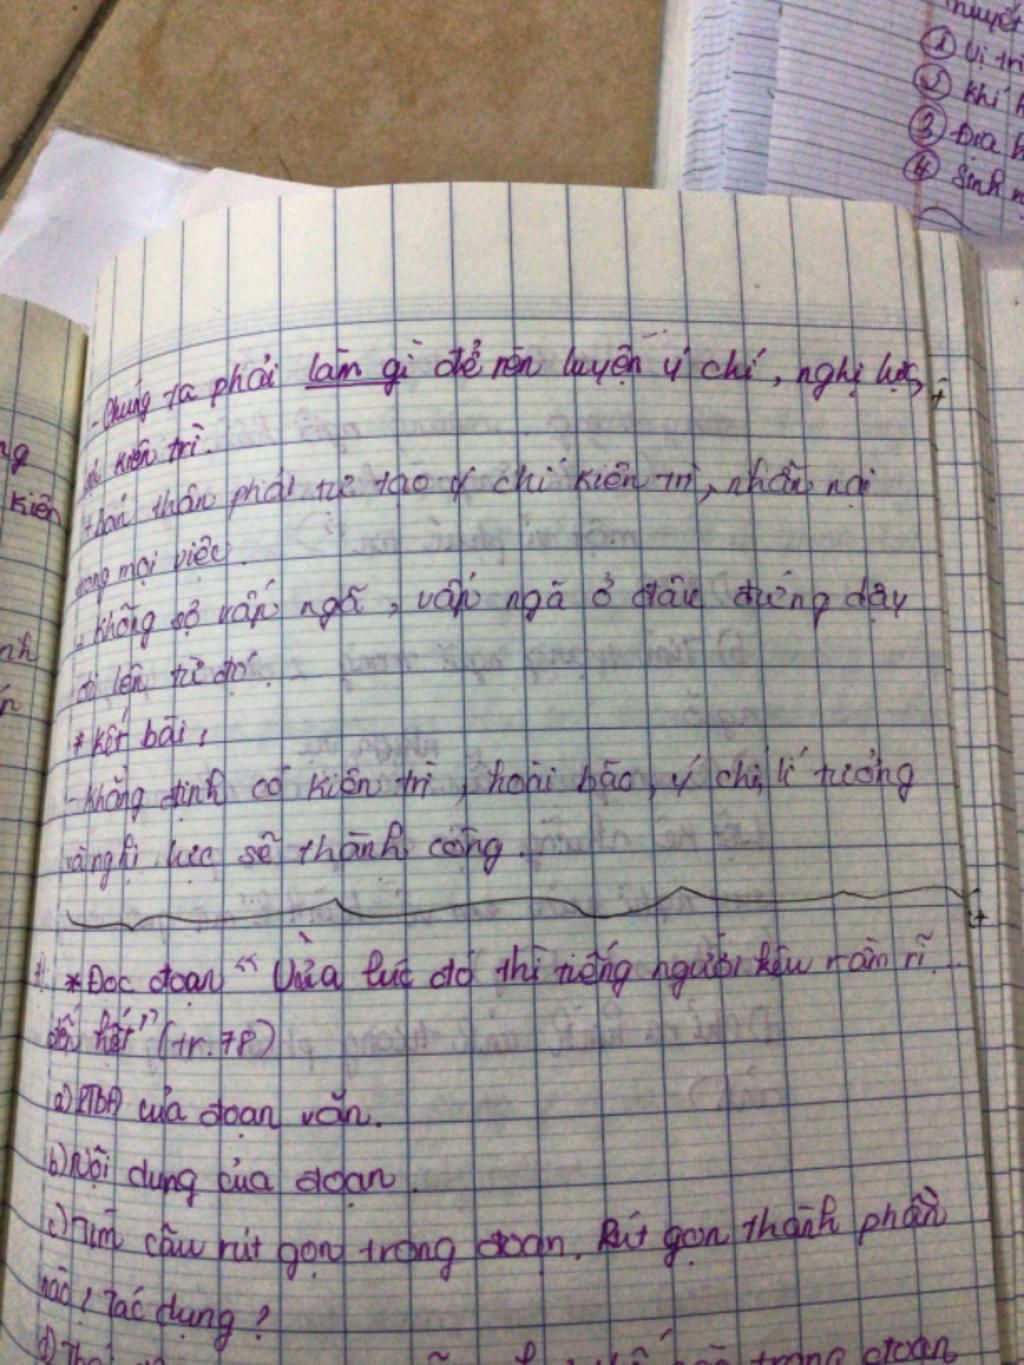 nguyê
① Vị trí
② Khí h
③ Địa h
④ Sinh
- Chúng ta phải làm gì để rèn luyện ý chí, nghị lực,
kiên trì.
+ Bản thân phải tự tạo ý chí kiên trì, nhẫn nại
trong mọi việc.
không sợ vấp ngã, vấp ngã ở đâu đứng dậy
đi lên từ đó.
* Kết bài:
- Khẳng định có kiên trì, hoài bão, ý chí, lí tưởng
và nghị lực sẽ thành công.
* Đọc đoạn "Vừa lúc đó thì tiếng người kêu rầm rĩ
đến hết" (tr.78)
a) PTBĐ của đoạn văn.
b) Nội dung của đoạn.
c) Tìm câu rút gọn trong đoạn. Rút gọn thành phần
nào? Tác dụng?
d) trong đoạn
ng
kiên
nh